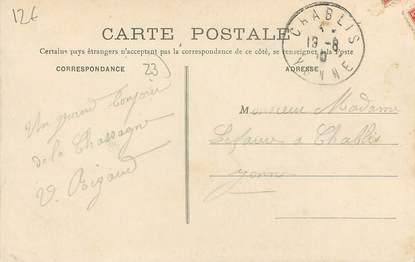 12€
CARTE POSTALE
Certains pays étrangers n'acceptant pas la correspondance de ce côté, se renseigner à la Poste
CHABLIS
13-8
YONNE
CORRESPONDANCE
23
Un grand bonjour
de la Chassagne
V. Bigaud
Monsieur Madame
à Chablis
Yonne